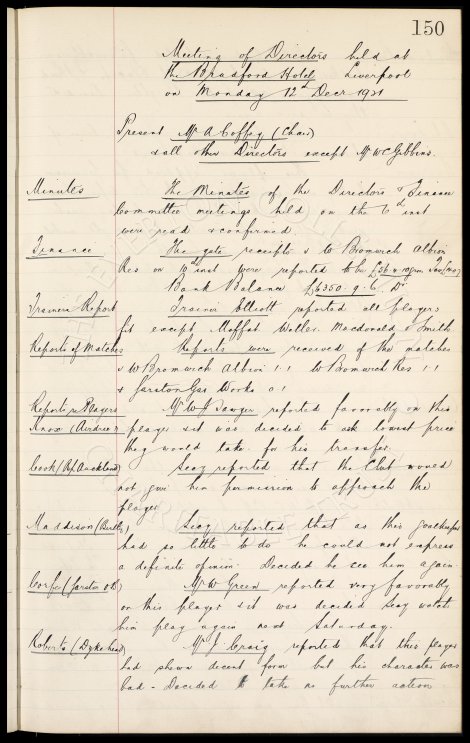 150
Meeting of Directors held at
the Bradford Hotel Liverpool
on Monday 12th Decr 1921
Present Mr A Coffey (Chair)
& all other Directors except Mr W C Gibbins.
Minutes The Minutes of the Directors & Finance
Committee meetings held on the 6th inst
were read & confirmed
Finance The gate receipts v W Bromwich Albion
Res on 10th inst were reported to be £56
Bank Balance £6350.9.6 Dr
Trainers Report Trainer Elliott reported all players
fit except Moffat Weller Macdonald & Smith
Reports of Matches Reports were received of the matches
v W Bromwich Albion 1:1 W Bromwich Res 1:1
& Garston Gas Works 0:1
Reports re Players Mr W J Sawyer reported favorably on this
Knox (Airdrie) player & it was decided to ask lowest price
they would take for his transfer.
Cook (Bp Auckland) Secy reported that the Club would
not give him permission to approach the
player
Maddison Secy reported that as this goalkeeper
had so little to do he could not express
a definite opinion. Decided he see him again.
Corfe (Garston Mr W Green reported very favorably
on this player & it was decided Secy watch
him play again next Saturday.
Roberts (Dykehead) Mr J Craig reported that this player
had shewn decent form but his character was
bad - Decided to take no further action